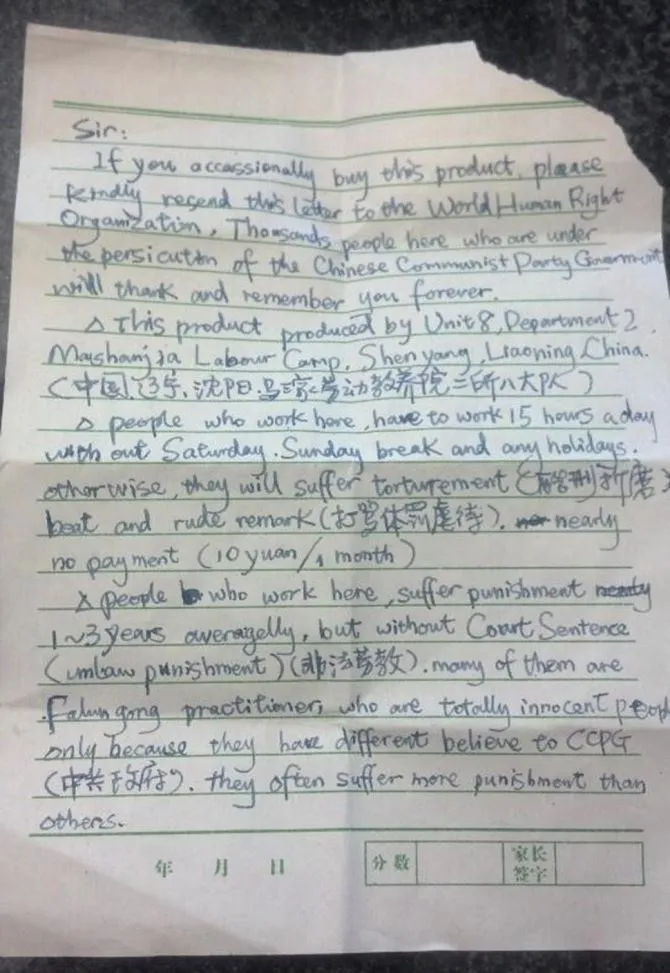 Sir:
If you occassionally buy this product, please
kindly resend this letter to the World Human Right
Organization. Thousands people here who are under
the persicution of the Chinese Communist Party Goverment
will thank and remember you forever.
△ This product produced by Unit 8, Department 2,
Mashanjia Labour Camp, Shenyang, Liaoning, China.
(中国,辽宁,沈阳,马三家劳动教养院二所八大队)
△ people who work here, have to work 15 hours a day
with out Saturday, Sunday break and any holidays.
otherwise, they will suffer torturement (酷刑折磨)
beat and rude remark (打骂体罚虐待). nearly
no payment (10 yuan/1 month)
△ people who work here, suffer punishment
1~3 years averagelly, but without Court Sentence
(unlaw punishment) (非法劳教). many of them are
Falun gong practitioner, who are totally innocent people
only because they have different believe to CCPG
(中共政府). they often suffer more punishment than
others.
年 月 日
分数 家长签字